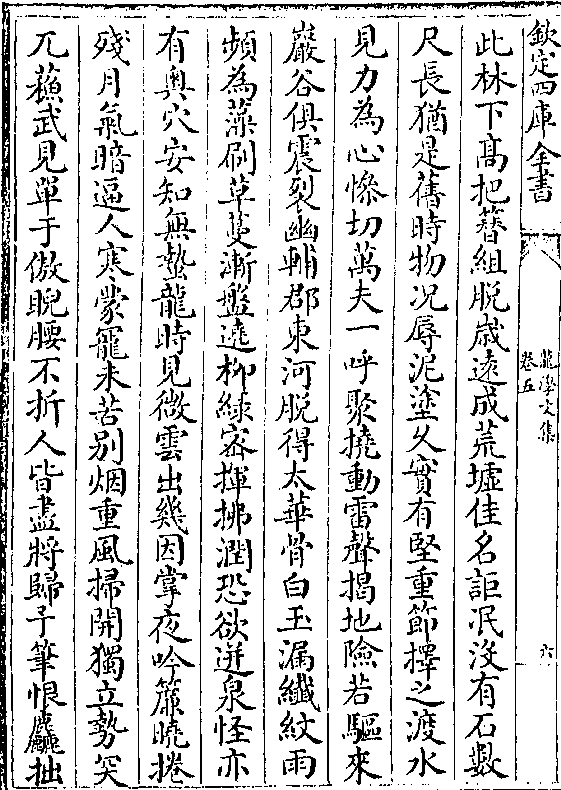 欽定四庫全書
龍學文集
卷五
六
此林下髙把簮組脱嵗逺成荒墟佳名詎泯沒有石數
尺長猶是舊時物况辱泥塗久實有堅重節擇之渡水
見力為心慘切萬夫一呼聚撓動雷聲揭地險若驅來
巖谷俱震裂幽輔郡東河脱得太華骨白玉漏纎紋雨
頻為藻刷草蔓漸盤遶柳綠宻揮拂潤恐欲迸泉怪亦
有輿穴安知無蟄龍時見微雲出幾因掌夜吟簾曉捲
殘月氣暗逼人寒蒙寵未苦别烟重風掃開獨立勢突
兀蘓武見單于傲睨腰不折人皆盡將歸子筆恨麤拙